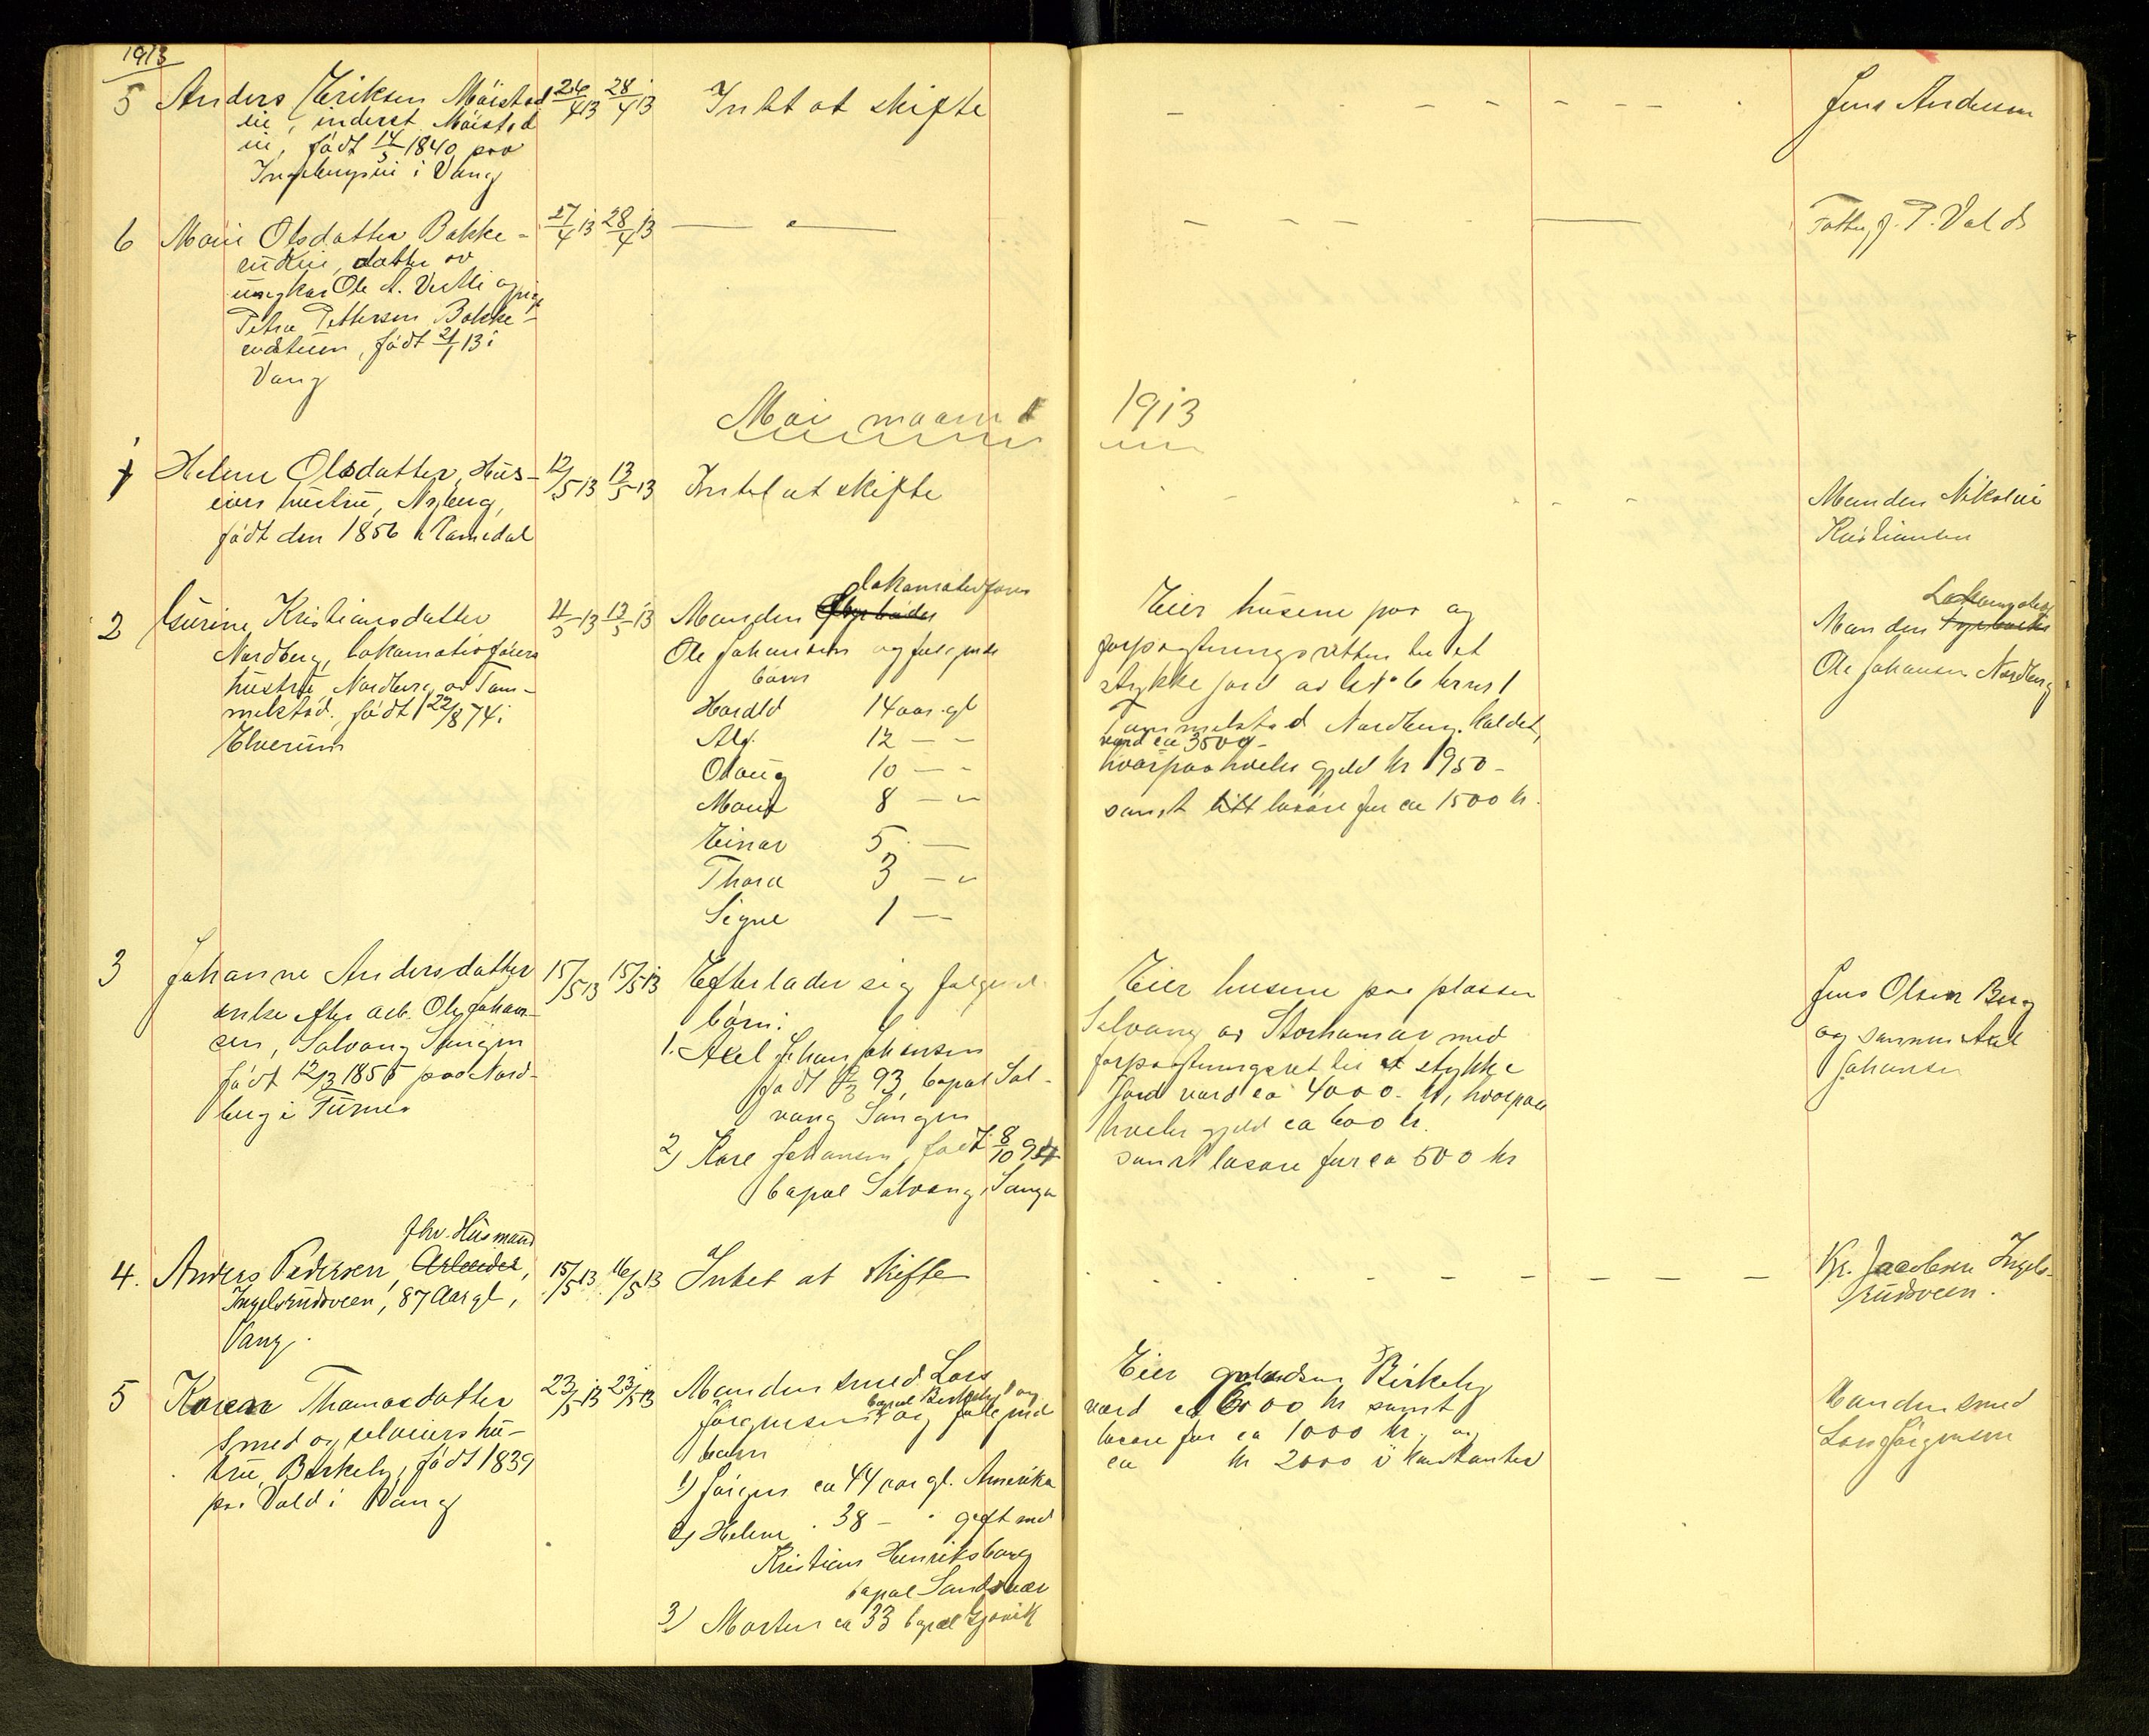 1913
5 Anders Eriksen Måistad 26/4 13 28/4 13 Intet at skifte - - - - - - Jens Andersen
eie, inderst Måistad
eie, født 14/5 1840 paa
i Vang
6 Marie Olsdatter Bakke- 27/4 13 28/4 13 — " — - - - —
eie, datter av
ungkar Ole A. og pige
Petra Pettersen Bakke-
født 21/1 13 i
Vang
Mai maaned 1913
1 Helene Olsdatter, Hus- 12/5 13 13/5 13 Intet at skifte - - - - Manden Nikolai
eiers hustru, Nyberg, Kristiansen
født den 1856 i Romedal
2 Gurine Kristiansdatter 11/5 13 13/5 13 Manden lokomotivfører
Nordberg, lokomotivførers Ole Johansen og følgende
hustru Nordberg av Tom- børn
melstad. født 22/8 74 i
Elverum
Harald 14 aar gl
Alf. 12 — -
Olaug 10 — -
8 — -
Einar 5 —
Thora 3 — -
Signe 1 —
Eier husene paa og
forpagtningsretten til et
stykke jord av
Tommelstad Nordberg kaldet,
værd ca 3500 -
hvorpaa hviler gjeld kr 1950 -
samt løsøre for ca 1500 kr.
Manden
Ole Johansen Nordberg
3 Johanne Andersdatter 15/5 13 15/5 13 Efterlader sig følgende
enke efter arb. Ole Johan- børn:
sen, Solvang Sangen
født 12/3 1855 paa Nord-
berg i Furnes
1. Axel Johan Johansen
født 93, bopæl Sol-
vang Sangen
2) Kare Johansen, født 8/10 94
bopæl Solvang, Sangen
Eier husene paa pladsen
Solvang av Storhamar med
forpagtningsret til et stykke
jord værd ca 4000 - kr, hvorpaa
hviler gjeld ca 600 kr.
samt løsøre for ca 500 kr
Jens Olsen Berg
og sønnen Axel
Johansen
fhv. Husmand
4. Anders Pedersen, Arbeider, 15/5 13 16/5 13 Intet at skifte - - - - - - - - Kr. Jacobsen Ingels-
Ingelsrudsveen, 87 Aar gl, rudsveen.
Vang.
5 Karen Thomasdatter 23/5 13 23/5 13 Manden smed Lars
smed og selveiers hu- Jørgensen bopæl Birkely og følgende
stru, Birkely, født 1839 børn
paa Vold i Vang
1) Jørgen ca 44 aar gl. Amerika
2) Helene " 38 — " gift med
Kristian Henriksberg
bopæl Sandsvær
3) Morten ca 33 bopæl Gjøvik
Eier Birkely
værd ca 6000 kr samt
løsøre for ca 1000 kr, og
ca kr 2000 i kontanter
Manden smed
Lars Jørgensen